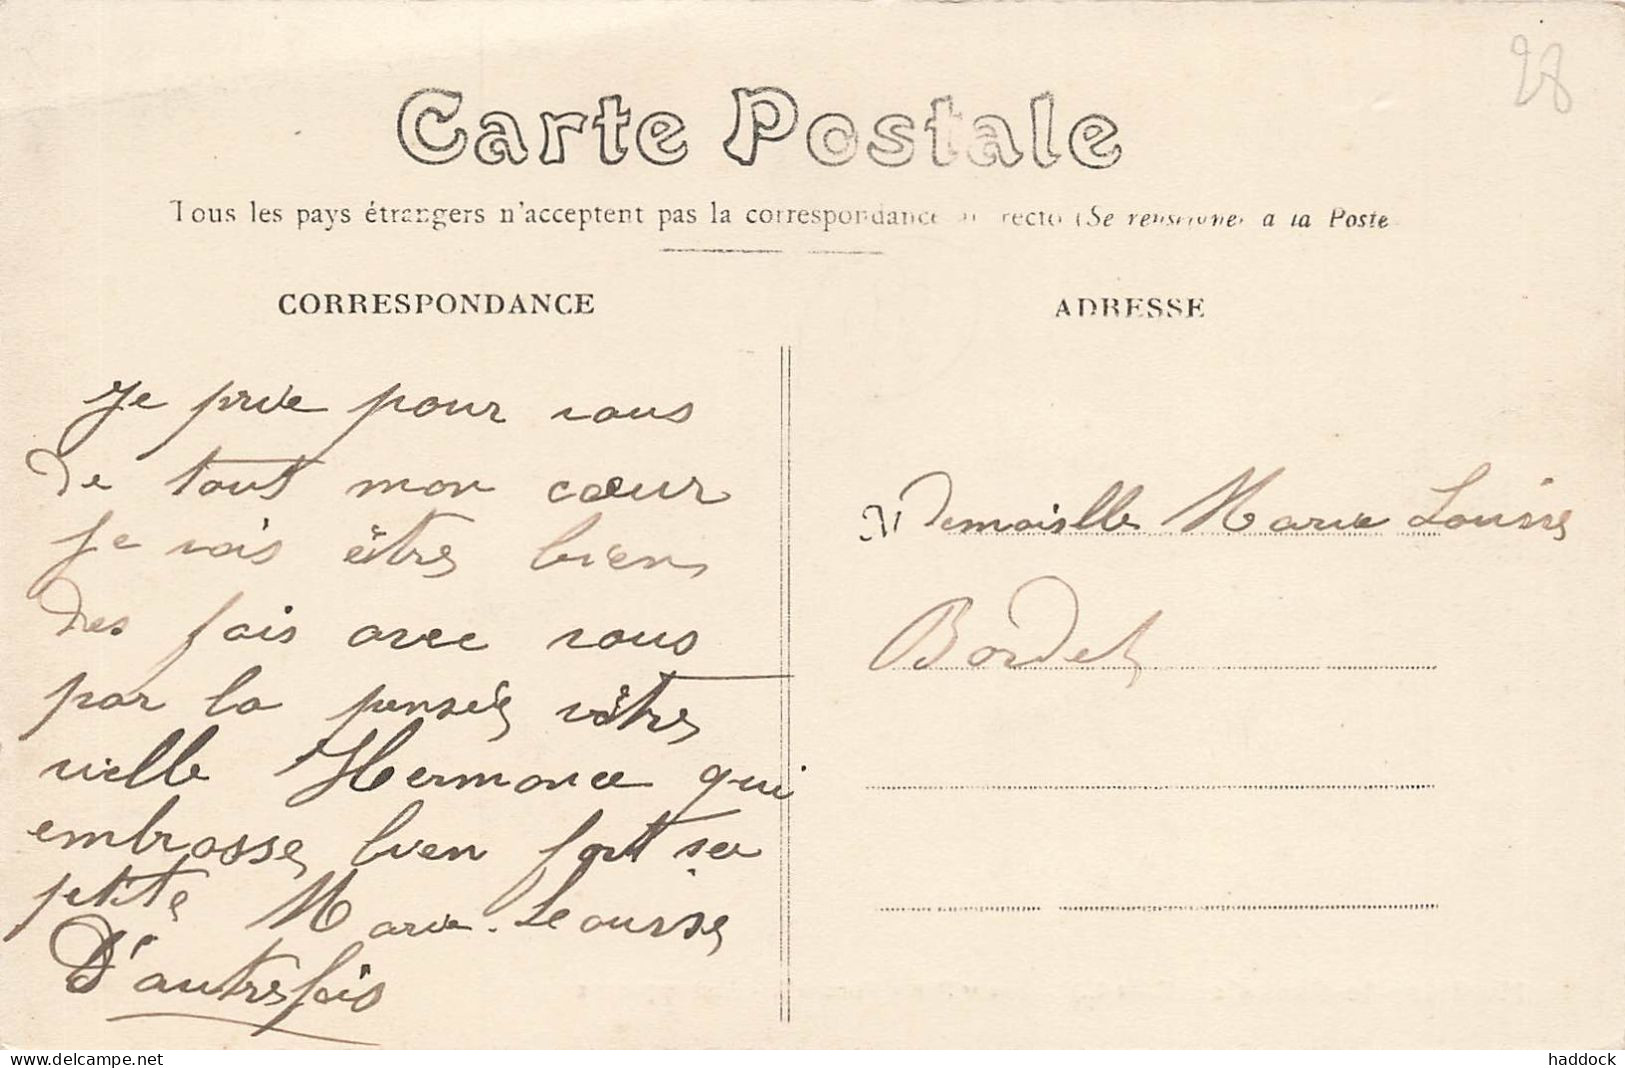 28
Carte Postale
Tous les pays étrangers n'acceptent pas la correspondance au recto (Se renseigner à la Poste
CORRESPONDANCE
ADRESSE
Je prie pour vous
de tout mon cœur
Je vais être bien
des fois avec vous
par la pensée vôtre
vielle Hermance qui
embrasse bien fort sa
petite Marie-Leouise
D'autrefois
Mdemoislle Marie Louise
Bordel
www.delcampe.net
haddock